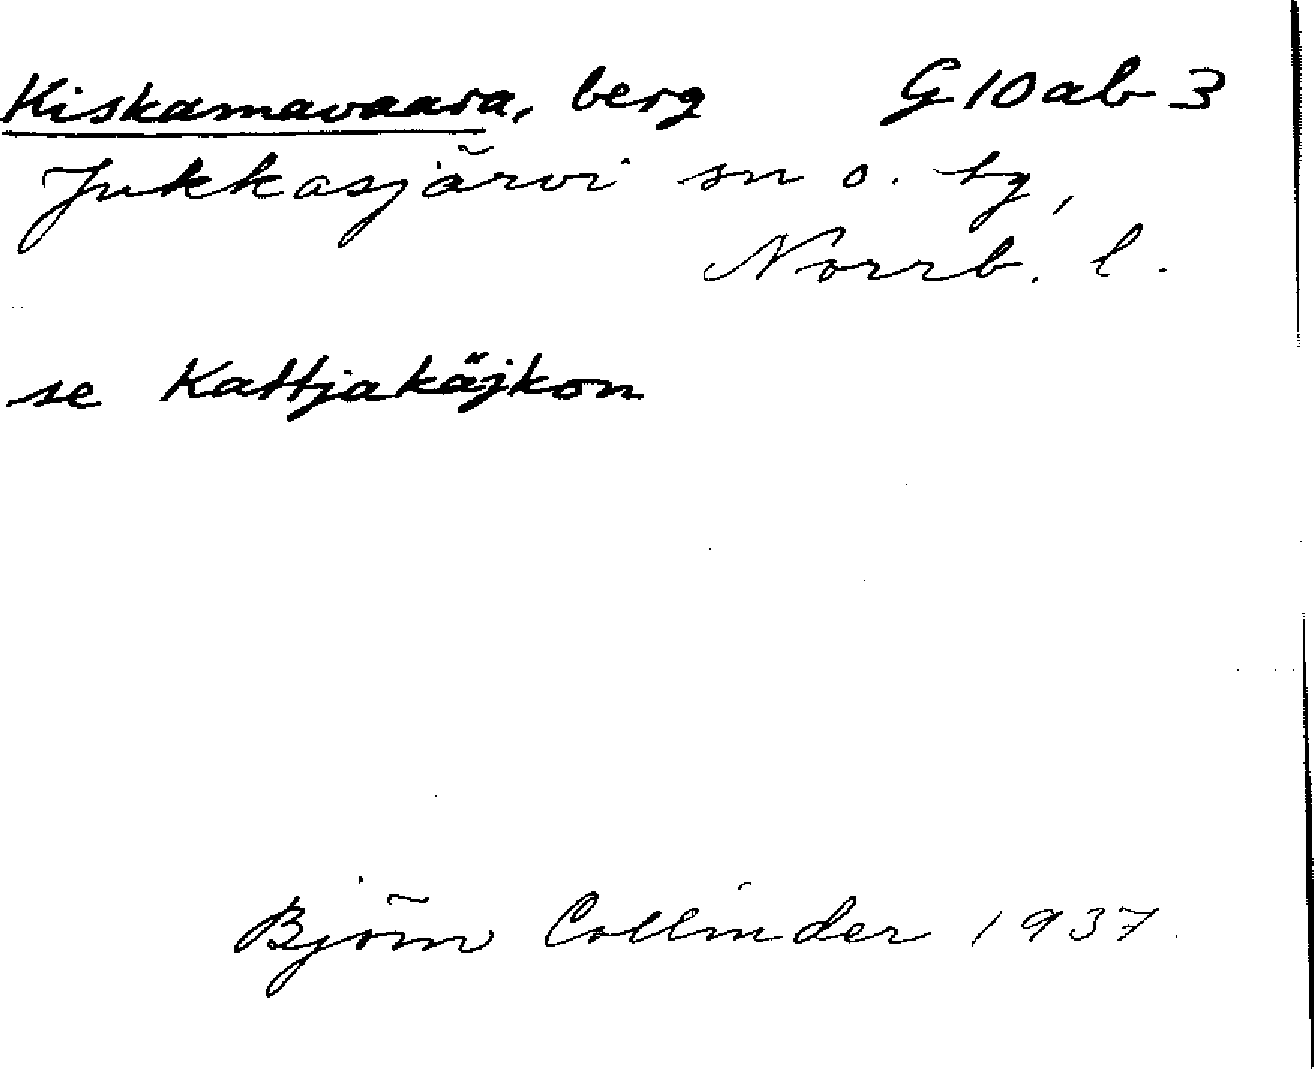 Kiskamavaara, berg G10ab3
Jukkasjärvi sn o. tg,
Norrb. l.
se Kattjakäjkon
Björn Collinder 1937.